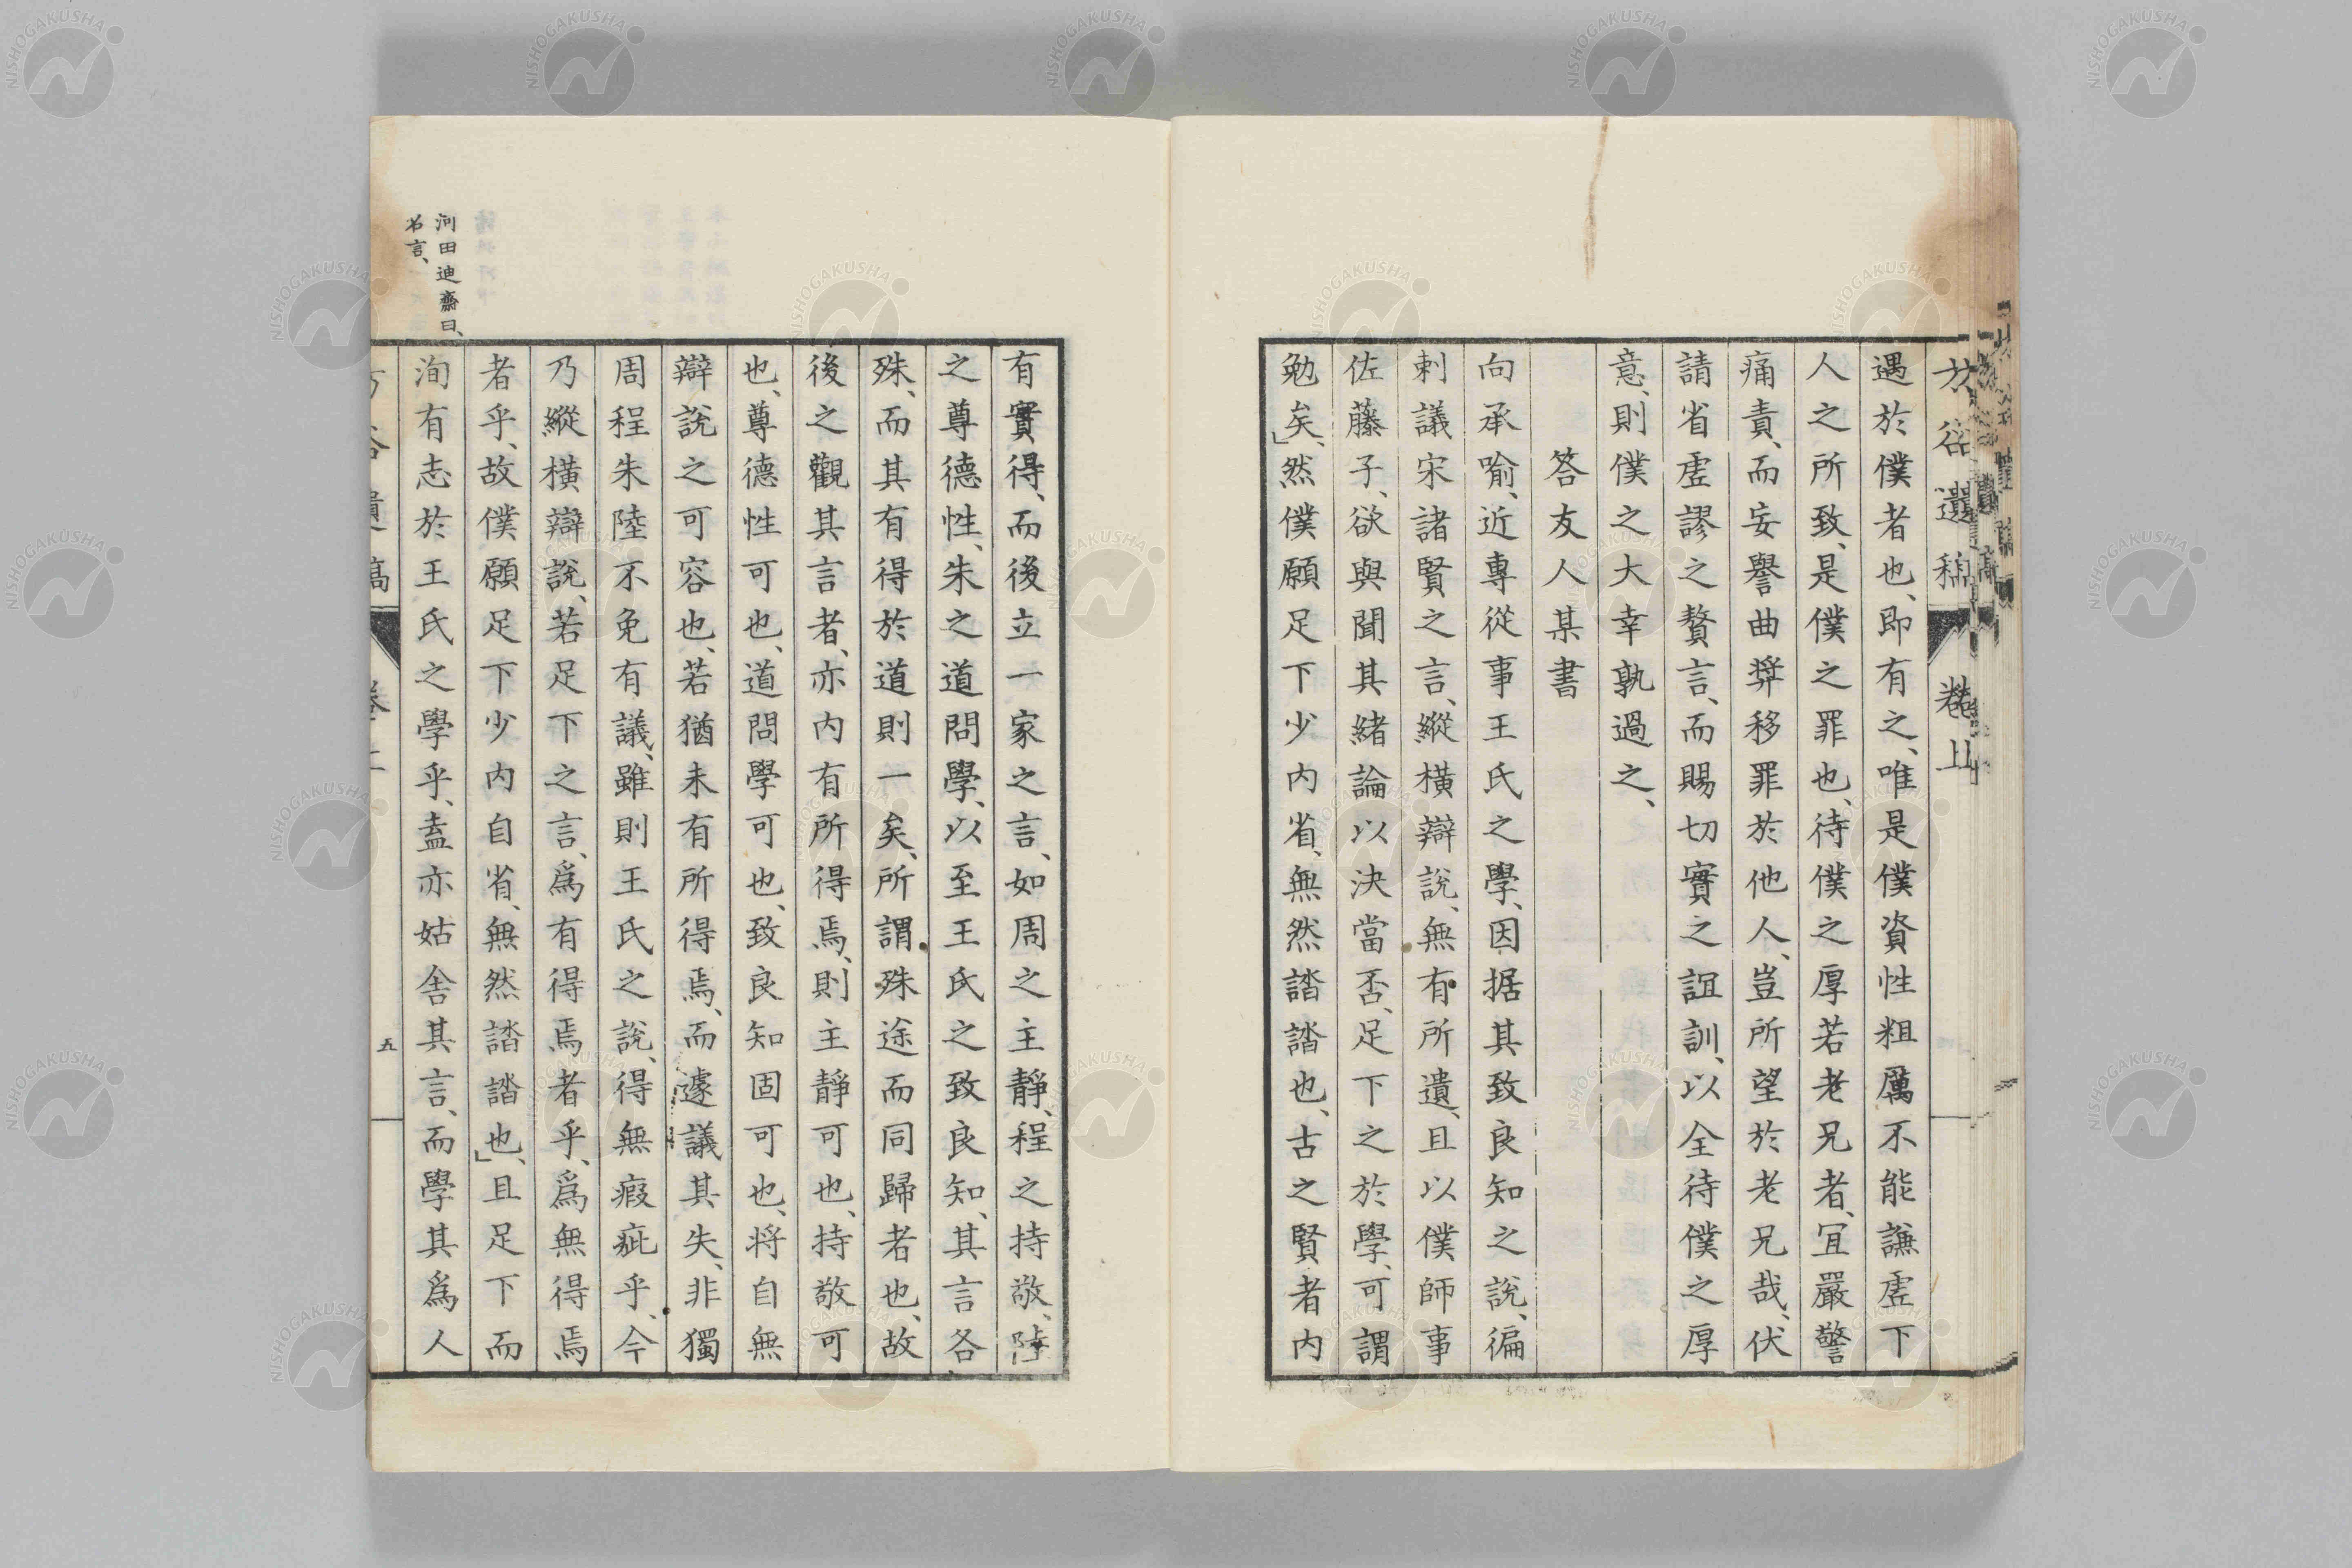 方谷遺稿 卷上
遇於僕者也、即有之、唯是僕資性粗厲不能謙虚下
人之所致、是僕之罪也、待僕之厚若老兄者、宜嚴警
痛責、而妄譽曲奨移罪於他人、豈所望於老兄哉、伏
請省虚謬之贅言、而賜切實之誼訓、以全待僕之厚
意、則僕之大幸孰過之、
答友人某書
向承喻、近專從事王氏之學、因据其致良知之說、徧
刺議宋諸賢之言、縱橫辯說、無有所遺、且以僕師事
佐藤子、欲與聞其緒論以決當否、足下之於學、可謂
勉矣、」然僕願足下少内省、無然誻誻也、古之賢者内
有實得、而後立一家之言、如周之主靜、程之持敬、陸
之尊德性、朱之道問學、以至王氏之致良知、其言各
殊、而其有得於道則一矣、所謂殊途而同歸者也、故
後之觀其言者、亦内有所得焉、則主靜可也、持敬可
也、尊德性可也、道問學可也、致良知固可也、将自無
辯說之可容也、若猶未有所得焉、而遽議其失、非獨
周程朱陸不免有議、雖則王氏之說、得無瑕疵乎、今
乃縱橫辯說、若足下之言、爲有得焉者乎、爲無得焉
者乎、故僕願足下少内自省、無然誻誻也、」且足下而
洵有志於王氏之學乎、盍亦姑舎其言、而學其爲人
河田迪齋曰、
名言、
五
NISHOGAKUSHA